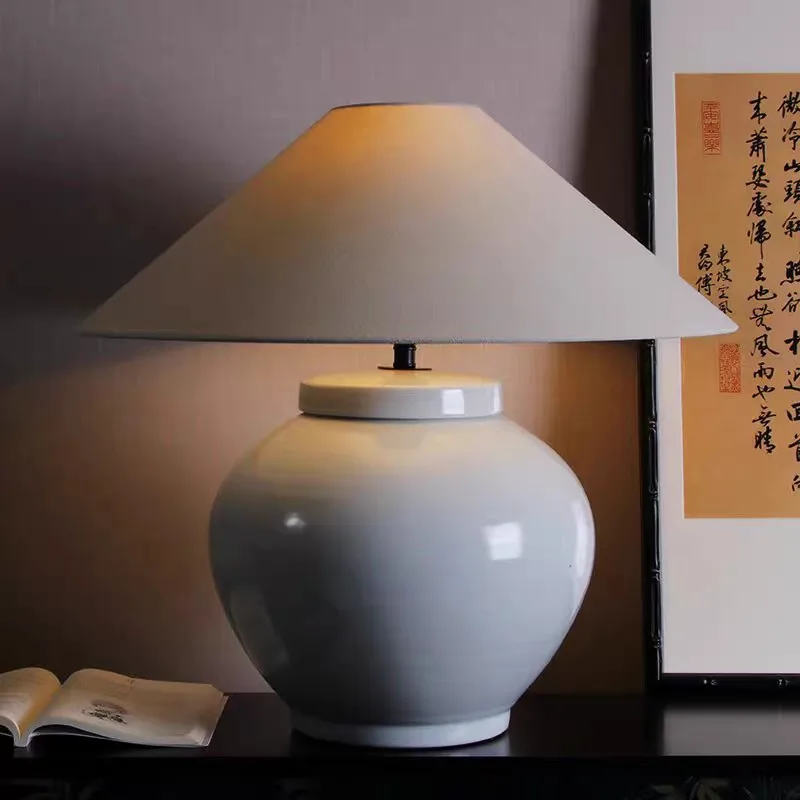 微冷山頭斜照卻相迎回首向
来蕭瑟處歸去也無風雨也無晴
東坡定風